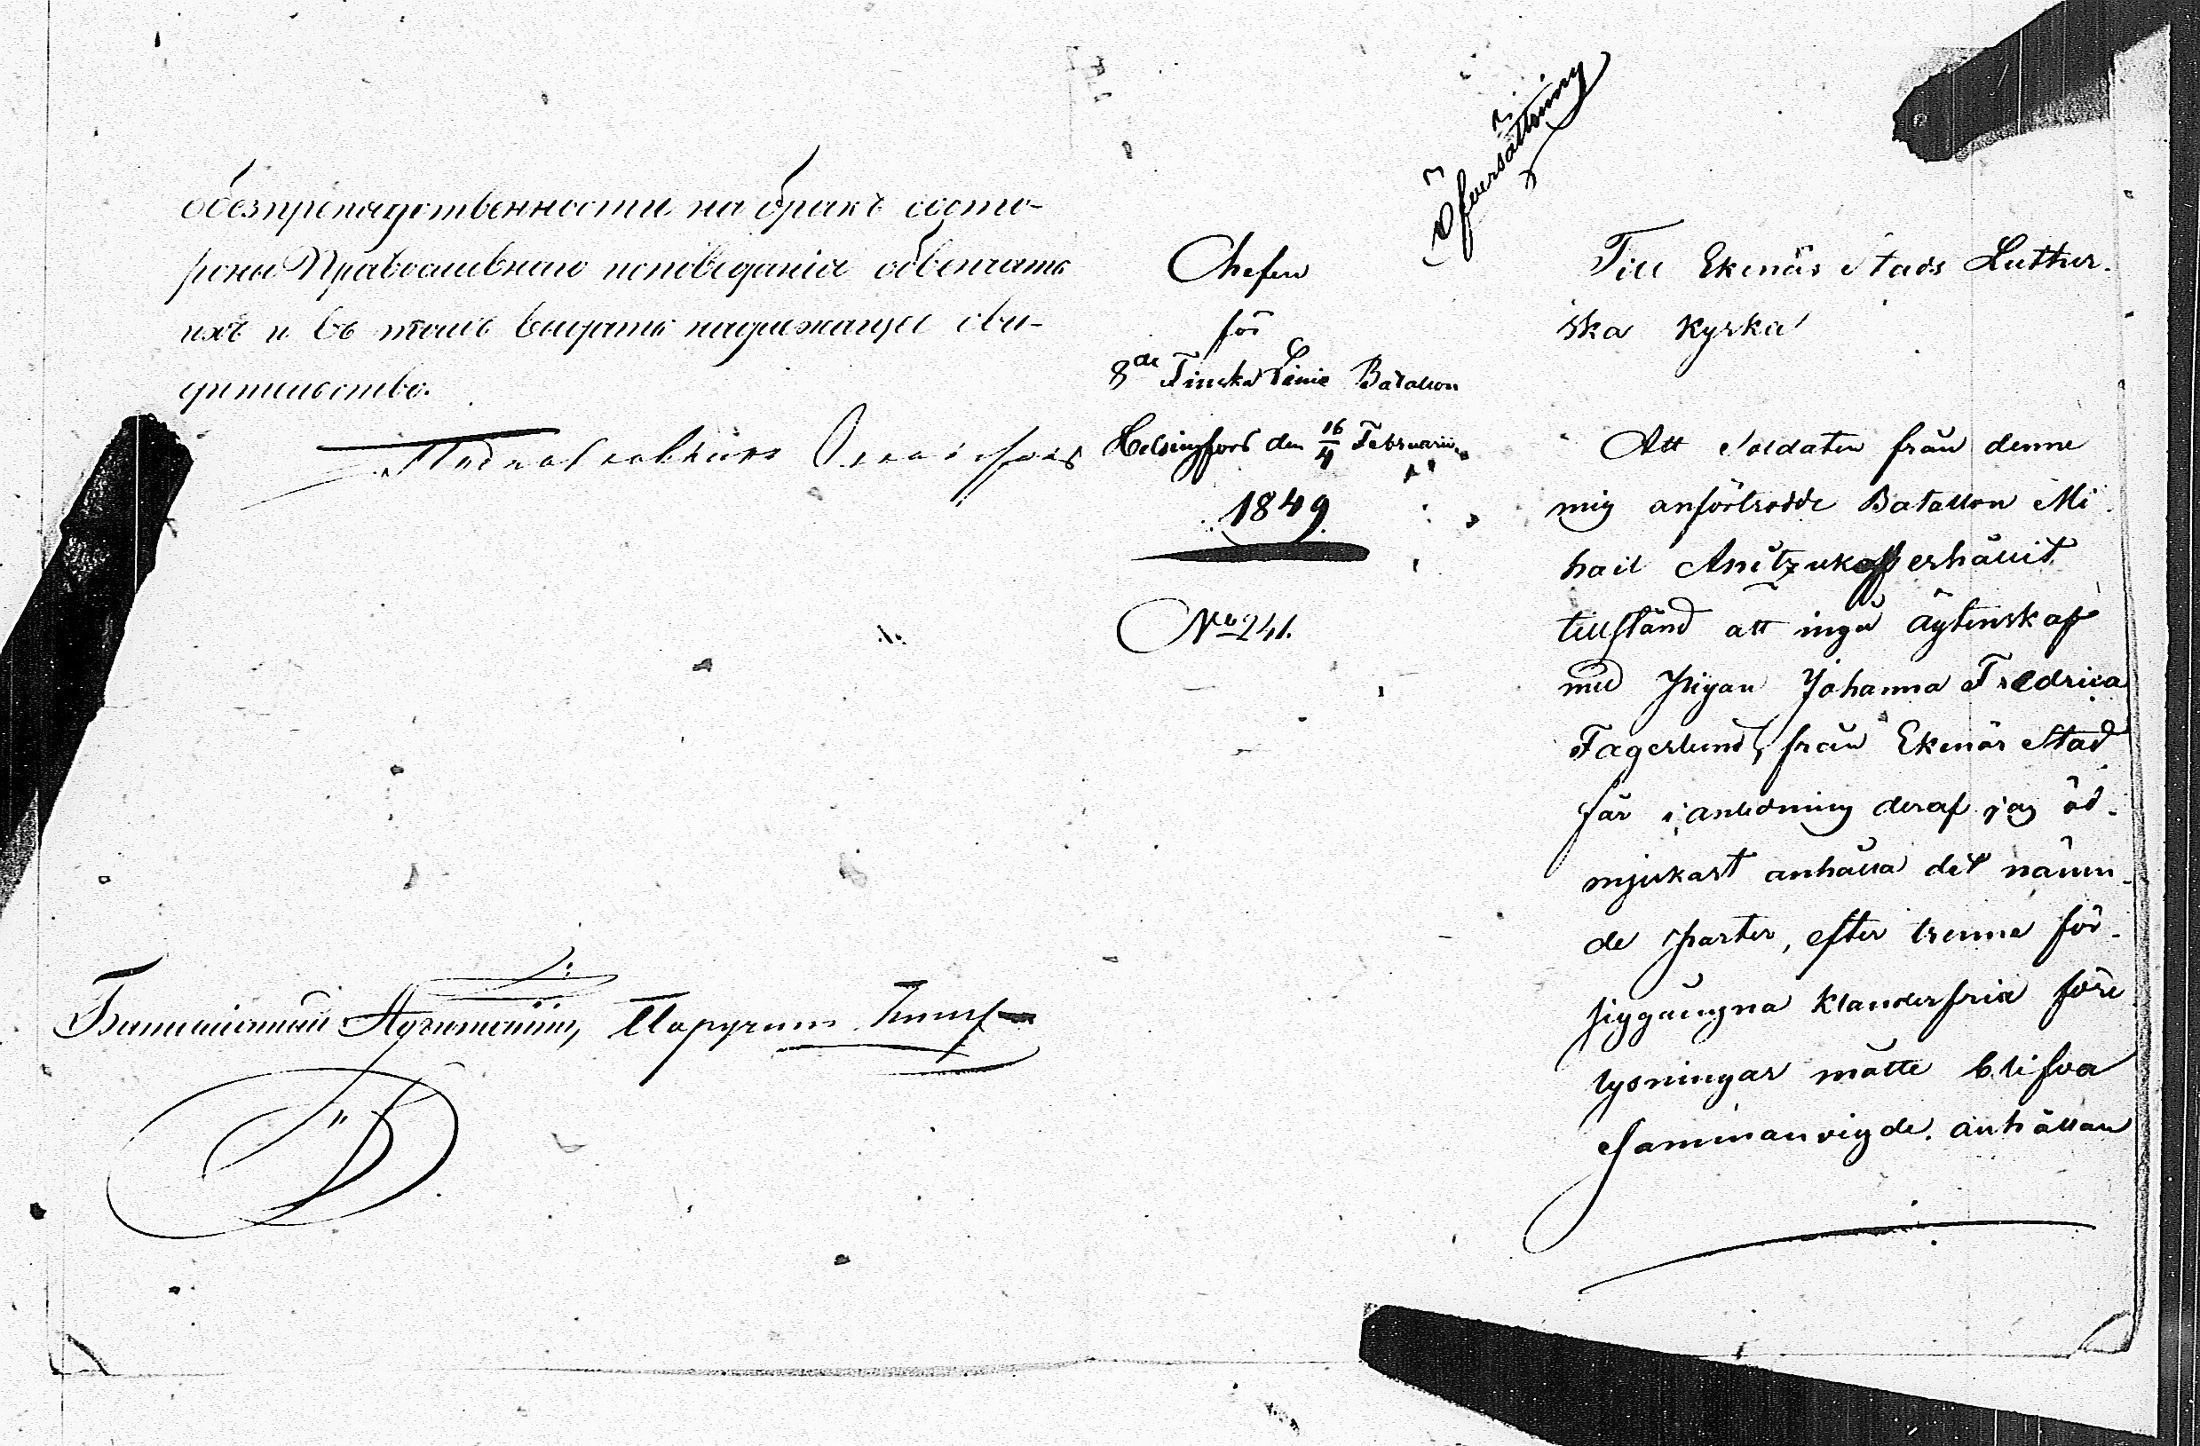 обезпрепядственности на бракъ состо-
роны Православнаго исповѣданія обвенчать
ихъ и въ томъ выдать надлежащее сви-
дительство.
Подполковникъ
Баталіонный Адъютантъ, Порутчик
Öfversättning
Chefen
för
8de Finska Linie Batallon
Helsingfors den 16/4 Februarii
1849.
No 241.
Till Ekenäs Stads Luther-
ska Kyrka
Att Soldaten från denne
mig anförtrodde Batallon Mi
hail Anitzukoff erhållit
tillstånd att ingå ägtenskap
med Pigan Johanna Fredrica
Fagerlund, från Ekenäs Stad
får i anledning deraf jag öd-
mjukast anhålla det nämn-
de parter, efter trenne för-
siggångna klanderfria före
lysningar måtte blifva
Sammanvigde. anhållan